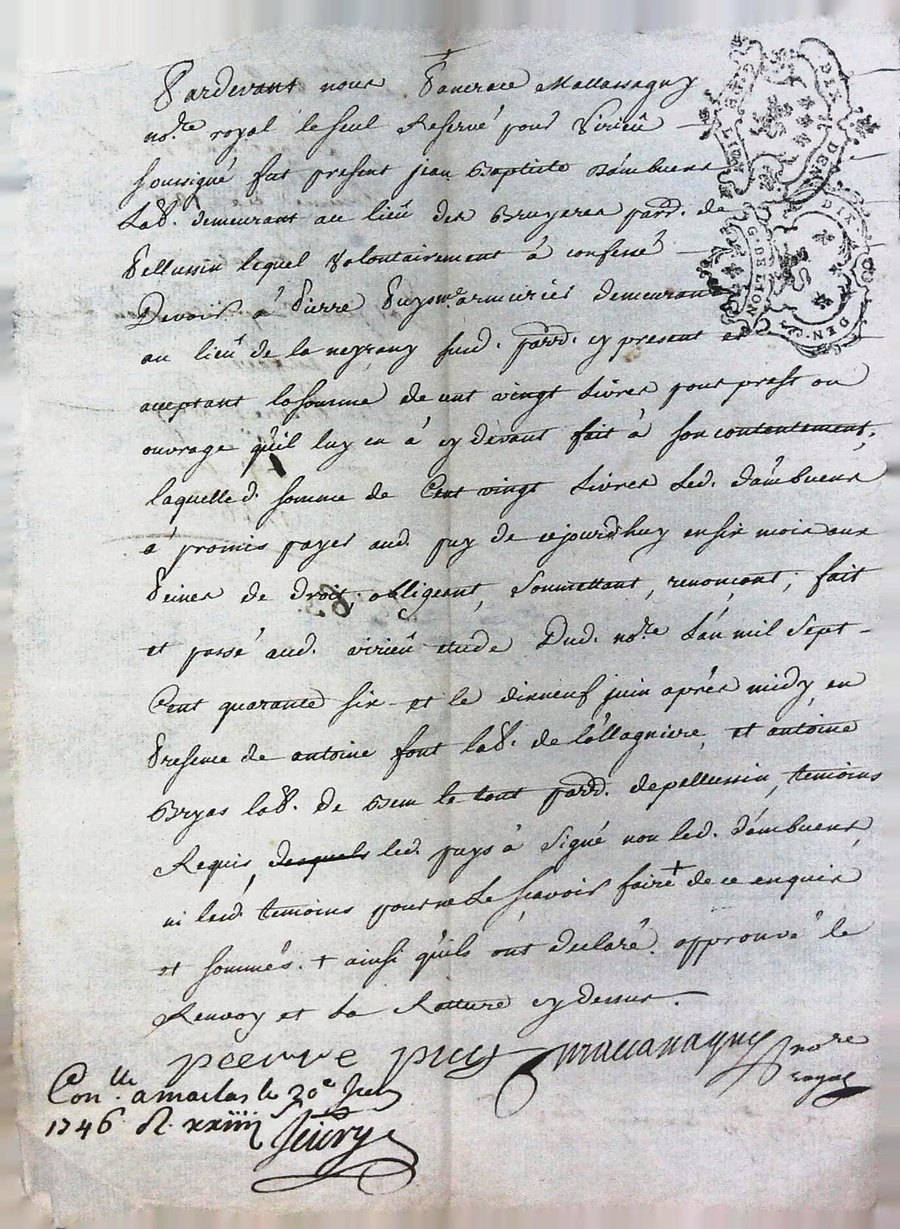 Pardevant nous Pancrace Maccanaguy
no.re royal le seul Reservé pour Virieû
soussigné fut present jean Baptiste Dambuent
Lab. demeurant au lieû des Bruyeres parr. de
Pellussin lequel volontairement à confessé
Devoir à Pierre Puys m.e armurier demeurant
au lieû de la neyrany susd. parr. cy present et
acceptant la somme de cent vingt Livres pour prest ou
ouvrage qu'il luy en à cy devant fait à son contentement,
laquelle d. somme de Cent vingt Livres Led. dambuent
a' promis payer aud. puy de cejourdhuy en six mois aux
Peines de droit, obligeant, Soumettant, renonçant, fait
et passé aud. virieû etude Dud. no.re L'an mil Sept-
Cent quarante six et le dixneuf juin après midy, en
Presence de antoine font lab. de et antoine
Bryas lab. de Bem le tout parr. de pellussin, temoins
Requis, desquels led. puys à Signé non led. dambuent
ni lesd. temoins pour ne Le sçavoir faire + de ce enquis
et sommés. + ainsi qu'ils ont déclaré. approuvé le
Renvoy et La Ratture cy dessus.
pierre puy Maccanaguy no.re
royal
Con.lle a maclas le 20e Juin
1746 R. xxiiii s
Seivry
DIX DEN
G. DE LION
DIX DEN.
G. DE LION